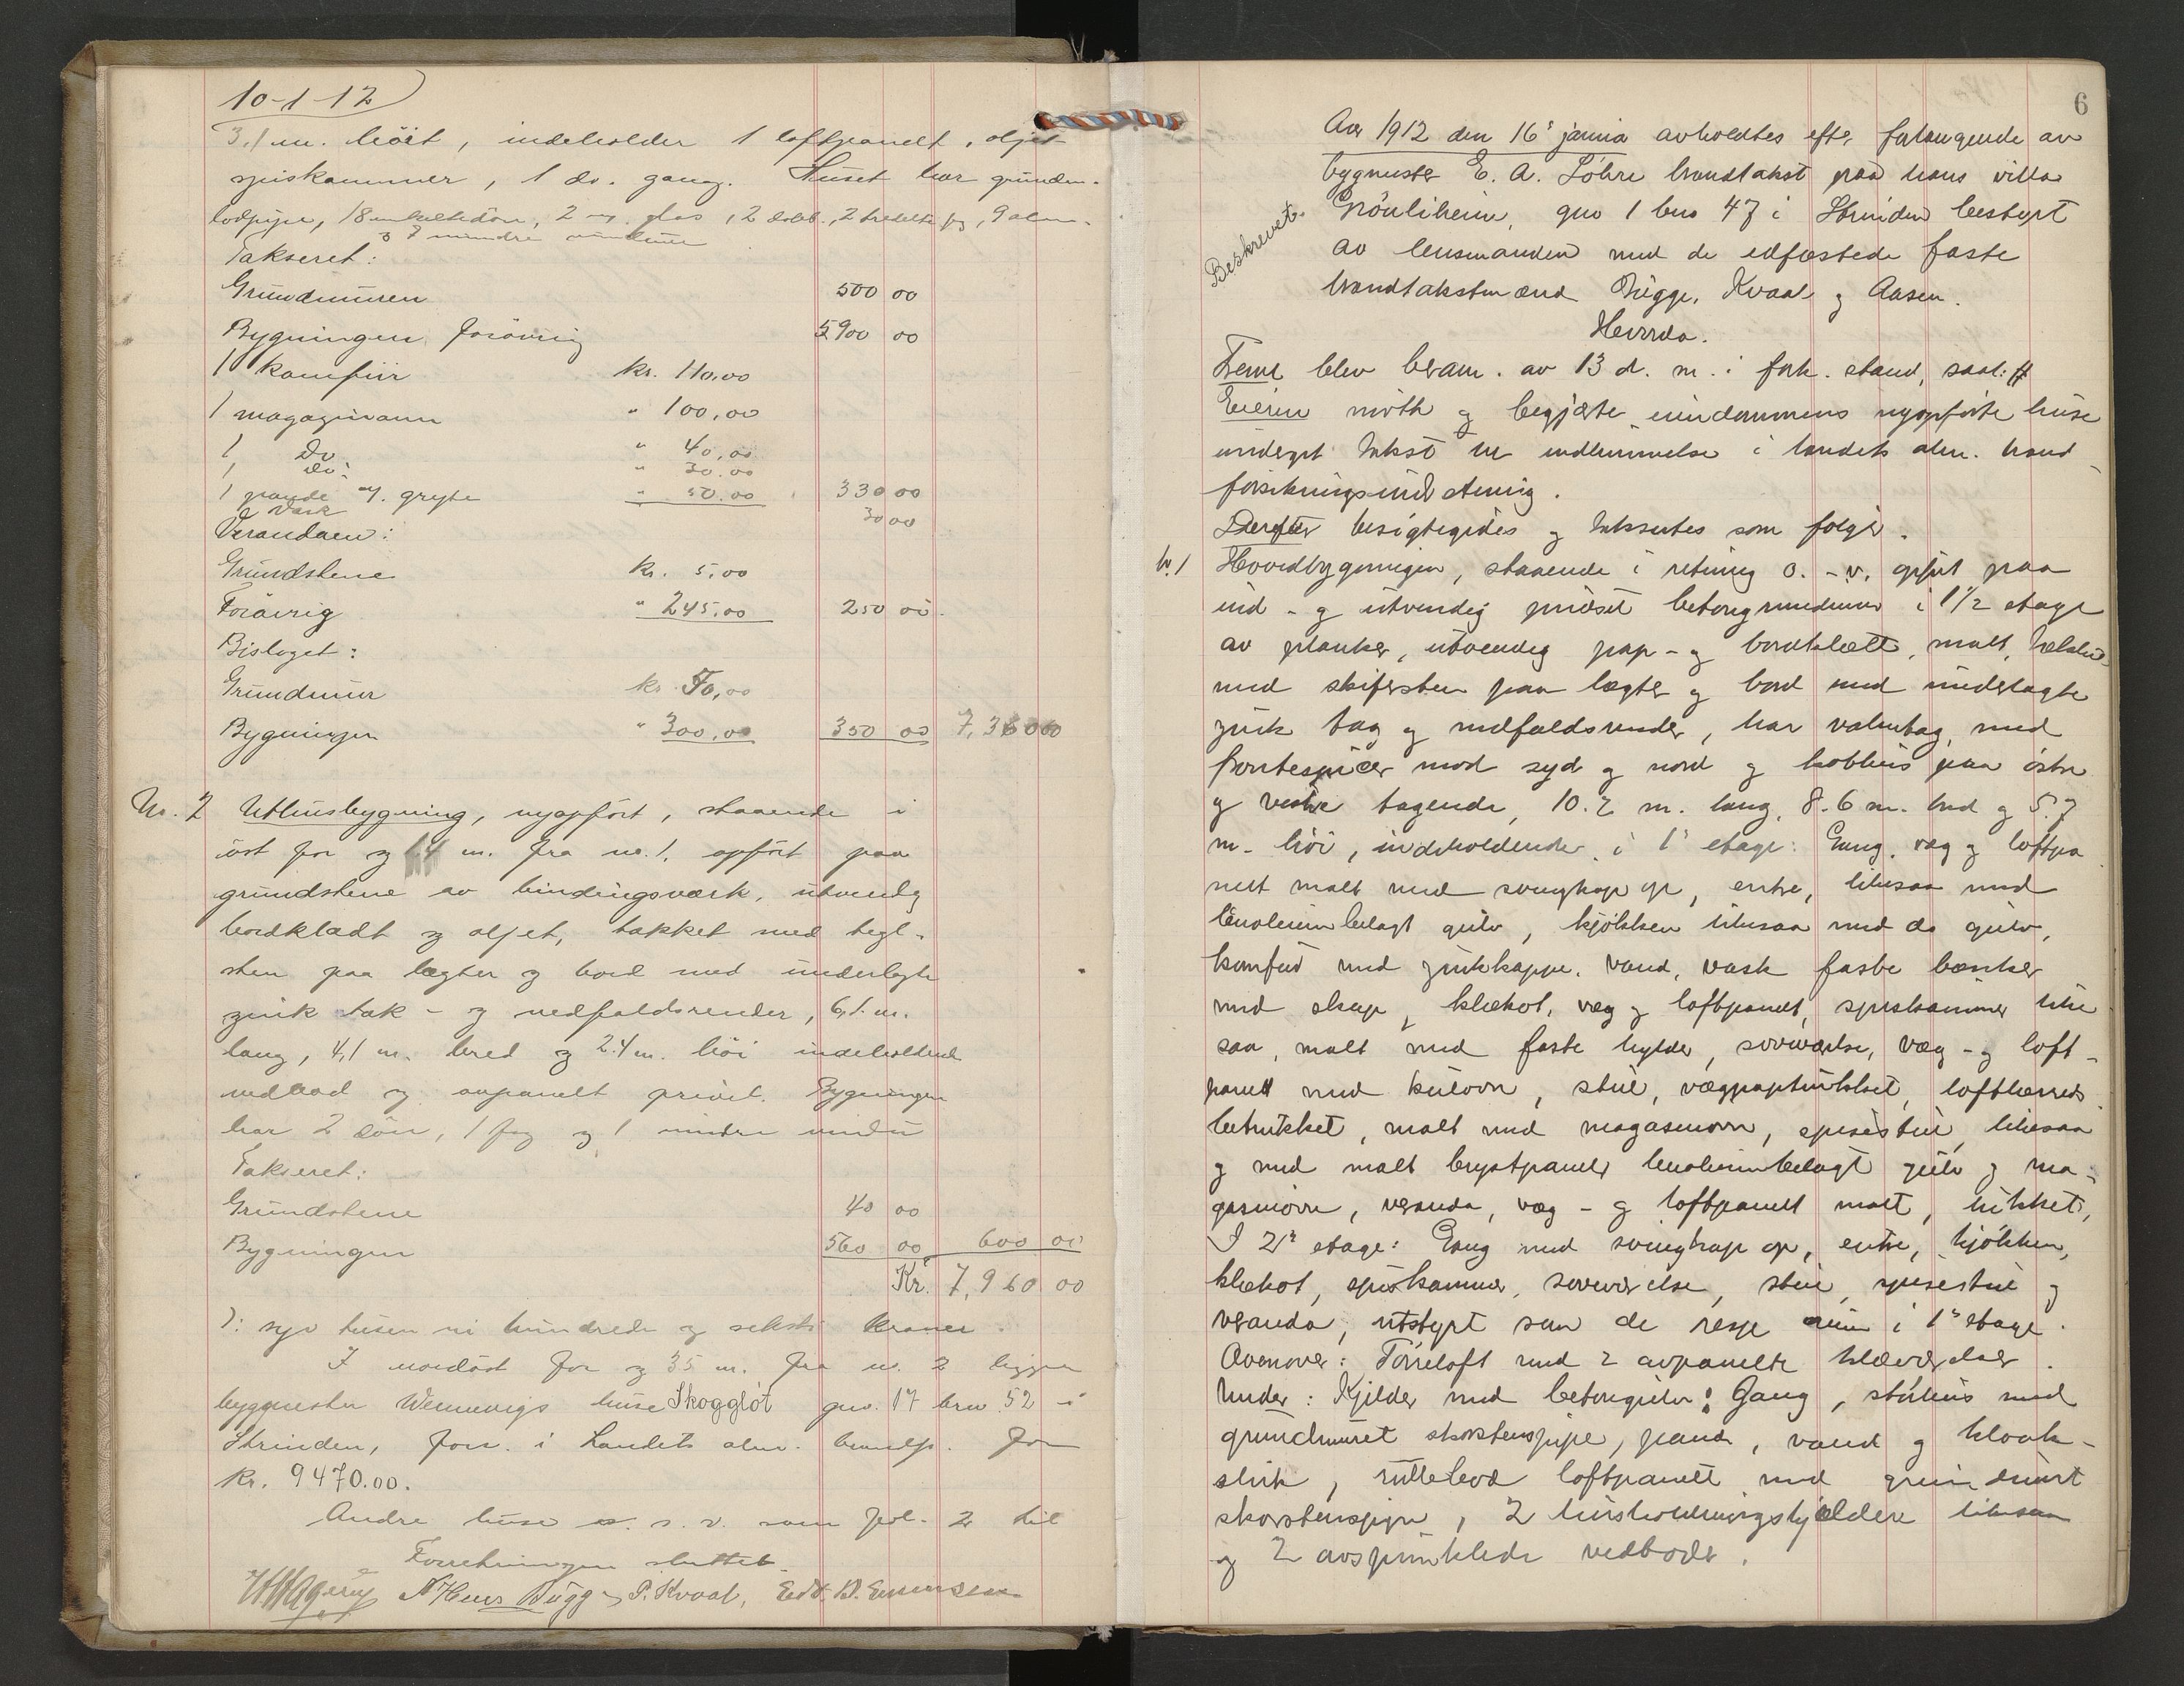 10-1-12
3,1 m. höit, indeholder 1 loftpanelt, oljet
spiskammer, 1 do. gang. Huset har grundm.
lodpipe, 18 enkeltdöre, 2 m. glas, 2 dobb., 2 tredelte fag, 9 alm.
og 7 mindre vinduer
Takseret:
Grundmuren 500 00
Bygningen forövrig 5900 00
1 komfür kr. 110,00
1 magazinovn " 100,00
1 Do " 40,00
1 do: " 30.00
1 pande m. gryte " 50.00 330 00
1 vask 30 00
Verandaen:
Grundstene kr. 5,00
Forövrig " 245,00 250 00
Bislaget:
Grundmur kr. 50,00
Bygningen " 300,00 350 00 7,360 00
Nr. 2 Uthusbygning, nyopfört, staaende i
öst for og 14 m. fra nr. 1, opfört paa
grundstene av bindingsværk, utvendig
bordklædt og oljet, tækket med tegl-
sten paa lægter og bord med underlagte
zink tak- og nedfaldsrender, 6,1 m.
lang, 4,1 m. bred og 2.4 m. höi indeholdende
vedbod og avpanelt privet. Bygningen
har 2 döre, 1 fag og 1 mindre vindu
Takseret:
Grundstene 40 00
Bygningen 560 00 600 00
Kr. 7,960 00
ɔ: syv tusen ni hundrede og seksti kroner.
I nordöst for og 35 m. fra nr. 2 ligger
bygmester Wennevigs huse Skogglöt gnr. 17 brn. 52 i
Strinden, fors. i Landets alm. brandf. for
Kr. 9470.00.
Andre huse o. s. v. som fol. 2 til
Forretningen sluttet
N Henr Bügge P. Kvaal,
6
Aar 1912 den 16' januar avholdtes efter forlangende av
bygmester E. A. Löhre brandtakst paa hans villa
Beskrevet.
Grönliheim, gno 1 bno 47 i Strinden bestyrt
av lensmanden med de edfæstede faste
brandtakstmænd Bügge, Kvaal og Aasen.
Hvorda.
Fremt blev beram. av 13 d. m. i fork. stand, saal:
Eieren mötte og begjærte eiendommens nyopförte huse
undergit takst til indlemmelse i landets alm. brand
forsikringsindretning.
Derefter besigtigedes og taksertes som fölger.
Nr. 1 Hovedbygningen, staaende i retning ö. - v. opfört paa
ind- og utvendig pudset betongrundmur i 1 1/2 etage
av planker, utvendig pap- og bordklædt, malt, tækket
med skifersten paa lægter og bord med underlagte
zink tag og nedfaldsrender, har valmtag, med
frontespicer mod syd og nord og kobbhus paa östre
og vestre tagende, 10.2 m. lang, 8.6 m. bred og 5.7
m. höi, indeholdende i 1' etage: Gang, væg og loftpa
nelt malt med svingtrap op, entre, likesaa med
linoleumbelagt gulv, kjökken likesaa med do gulv,
komfur med zinkkappe, vand, vask faste bænker
med skap, klækot, væg og loftpanelt, spiskammer like
saa, malt med faste hylder, soveværelse, væg- og loft-
panelt med kulovn, stue, vægpaptrukket, loftlærreds
betrukket, malt med magasinovn, spisestue, likesaa
og med malt brystpanel linoleumbelagt gulv og ma-
gasinovn, veranda, væg- og loftpanelt malt, lukket,
I 2' etage: Gang med svingtrap op, entre, kjökken,
klækot, spiskammer, soveværelse, stue, spisestue og
veranda, utstyrt som de resp rum i 1' etage.
Ovenover: Törreloft med 2 avpanelte klæværelser.
Under: Kjelder med betongulv: Gang, störhus med
grundmuret skorstenspipe, pande, vand og kloak-
sluk, rullebod loftpanelt med grundmurt
skorstenspipe, 2 husholdningskjeldere likesaa
og 2 avsprinklede vedboder.